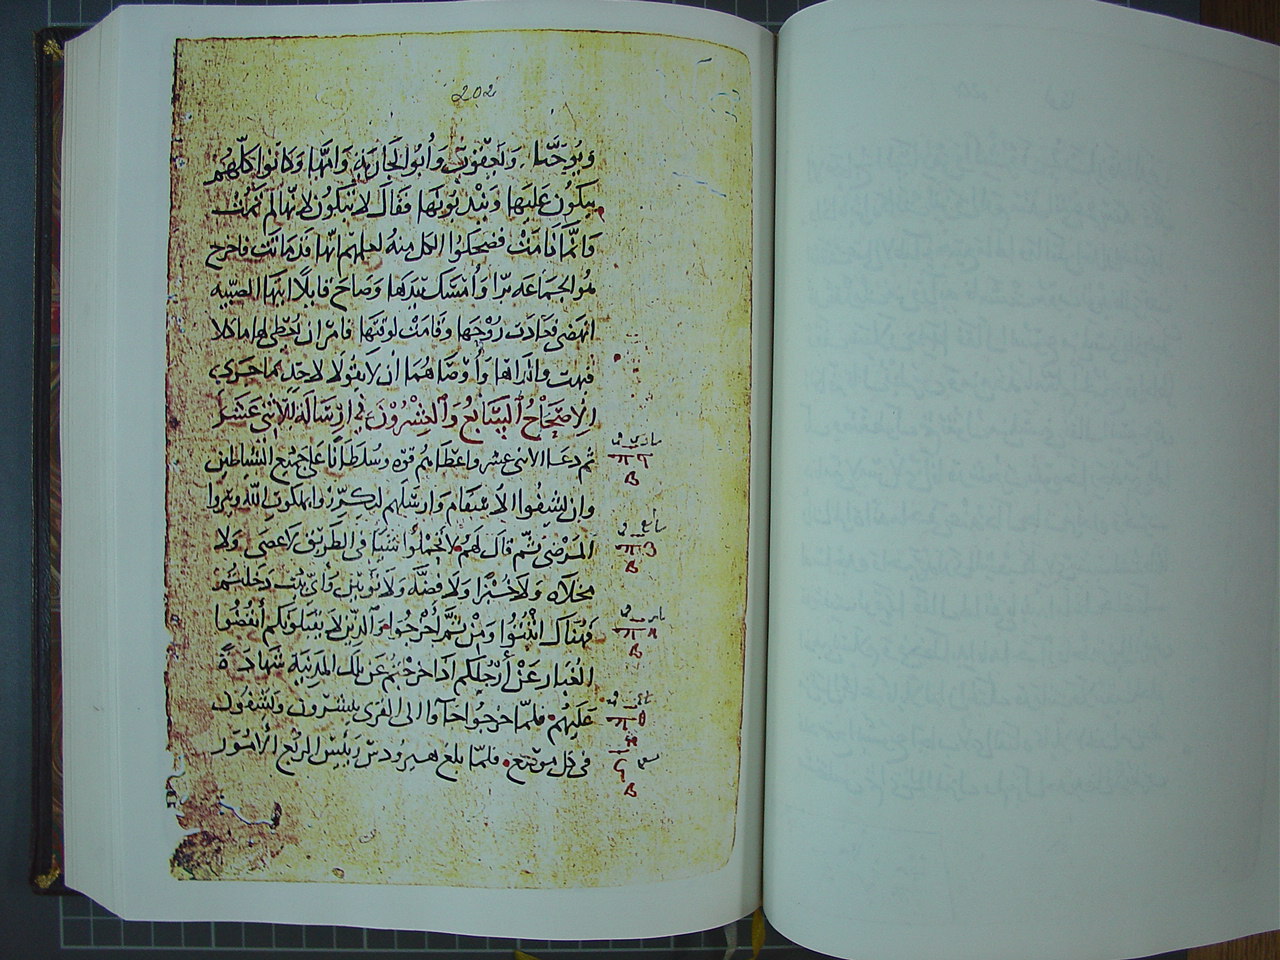 202
ويوحنا ولعقوب وأبو الجاريه وامها وكانوا كلهم
يبكون عليها ويندبونها فقال لا تبكون لانها لم تمت
وانما نامت فضحكوا الكل منه لعلمهم انها قد ماتت فاخرج
هو الجماعه برا وأمسك بيدها وصاح قايلا ايتها الصبيه
انهضى فعادت روحها وقامت لوقتها فامر ان تعطى لها ماكلا
فبهت والداها وأوصاهما أن لا يقولا لاحد بما جرى
الاصحاح السابع والعشرون في ارساله للاثنى عشر
ثم دعا الاثنى عشر واعطاهم قوه وسلطانا على جميع الشياطين
وان يشفوا الاسقام وارسلهم ليكرزوا بملكوت الله ويبروا
المرضى ثم قال لهم لا تحملوا شيا في الطريق لا عصى ولا
مخلاه ولا خبزا ولا فضه ولا ثوبين وأى بيت دخلتم
فهناك اثبتوا ومن ثم أخرجوا والذين لا يقبلونكم أنفضوا
الغبار عن أرجلكم اذا خرجتم عن تلك المدينه شهادة
عليهم فلما خرجوا جآوا الى القرى يبشرون ويشفون
في كل موضع فلما بلغ هيرودس رييس الربع الامور